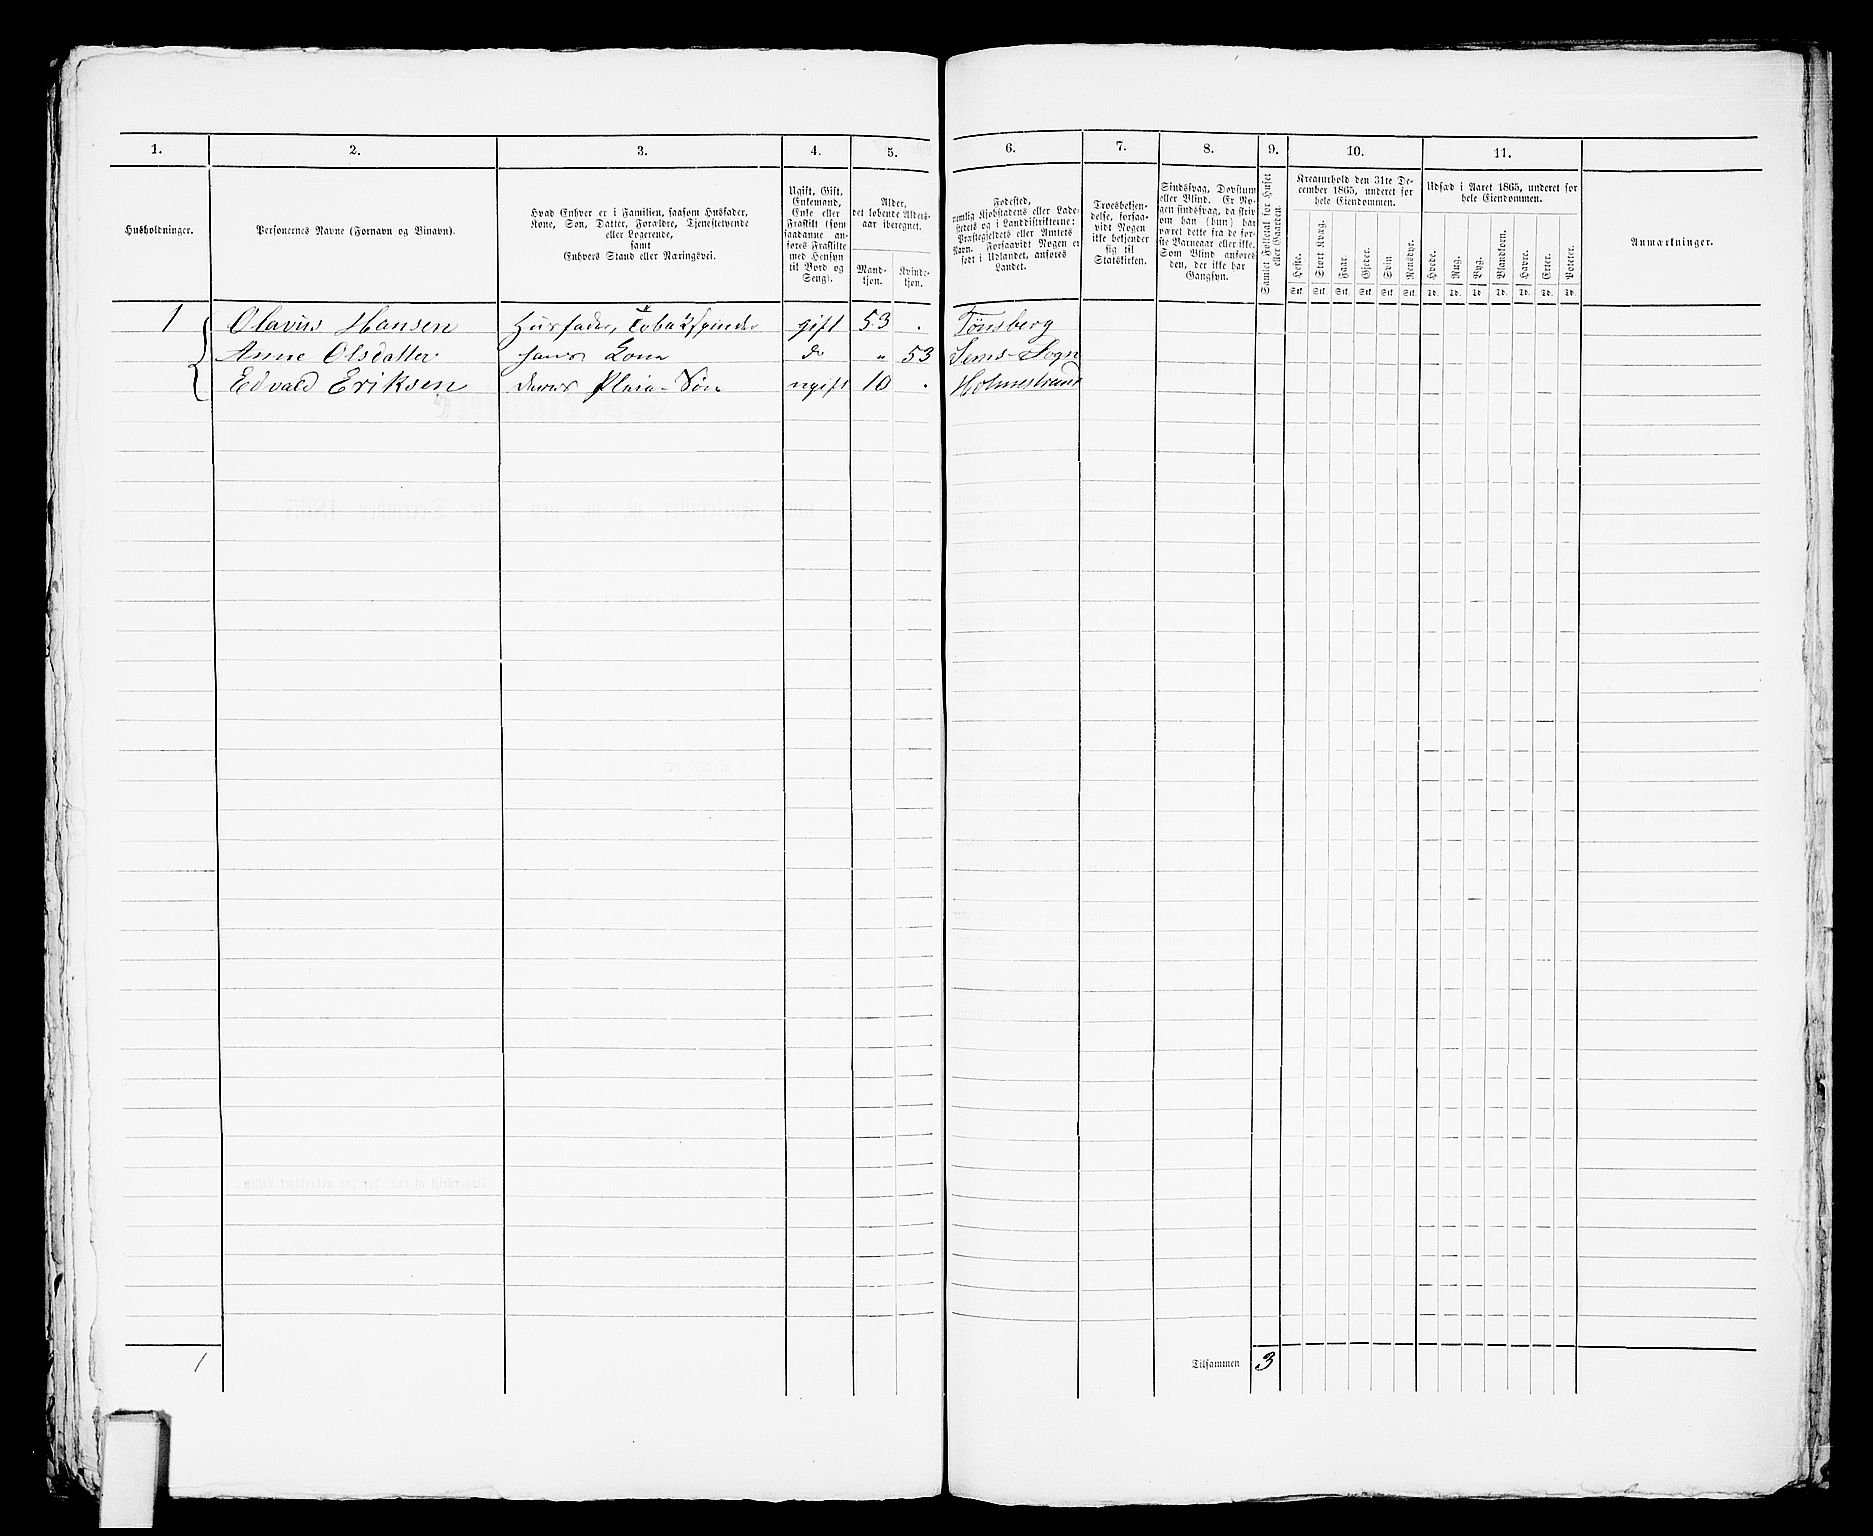 1. 2. 3. 4. 5. 6. 7. 8. 9. 10. 11.
Husholdninger.
Personernes Navne (Fornavn og Tilnavn).
Hvad Enhver er i Familien, saasom Husfader,
Kone, Søn, Datter, Forældre, Tjenestetyende
eller Logerende,
samt
Enhvers Stand eller Næringsvei.
Ugift, Gift,
Enkemand,
Enke eller
Fraskilt (som
saadanne an-
føres Fraskilte
med Hensyn
til Bord og
Seng).
Alder,
det løbende Alders-
aar iberegnet.
Mand-
kjøn.
Kvinde-
kjøn.
Fødested,
nemlig Kjøbstadens eller Lade-
stedets og i Landdistrikterne:
Præstegjeldets eller Annexets
Navn. Forsaavidt Nogen er
født i Udlandet, anføres
Landet.
Troesbekjen-
delse, forsaa-
vidt Nogen
ikke bekjender
sig til
Statskirken.
Sindssvag, Døvstum
eller Blind. Er No-
gen sindssvag, da skriv
om han (hun) har
været dette fra de før-
ste Barneaar eller ikke.
Som Blind anføres
den, der ikke har
Gangsyn.
Samlet Folketal for Huset
eller Gaarden.
Kreaturhold den 31te De-
cember 1865, underet for
hele Eiendommen.
Heste. Stort Kvæg. Faar. Gjeder. Svin. Rensdyr.
Stk. Stk. Stk. Stk. Stk. Stk.
Udsæd i Aaret 1865, underet for
hele Eiendommen.
Hvede. Rug. Byg. Blandkorn. Havre. Erter. Poteter.
Td. Td. Td. Td. Td. Td. Td.
Anmærkninger.
1 Olavus Hansen Husfader, Tobaksspinder gift 53 . Tönsberg
Anne Olsdatter hans Kone do " 53 Sems-Sogn
Edvald Eriksen deres Pleie-Søn ugift 10 . Holmestrand
1 Tilsammen 3